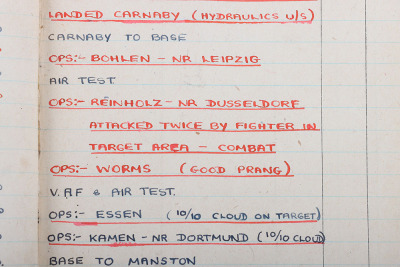 LANDED CARNABY (HYDRAULICS U/S)
CARNABY TO BASE
OPS:- BOHLEN - NR LEIPZIG
AIR TEST
OPS:- REINHOLZ - NR DUSSELDORF
ATTACKED TWICE BY FIGHTER IN
TARGET AREA - COMBAT
OPS:- WORMS (GOOD PRANG)
V.A F & AIR TEST.
OPS:- ESSEN (10/10 CLOUD ON TARGET)
OPS:- KAMEN - NR DORTMUND (10/10 CLOUD)
BASE TO MANSTON